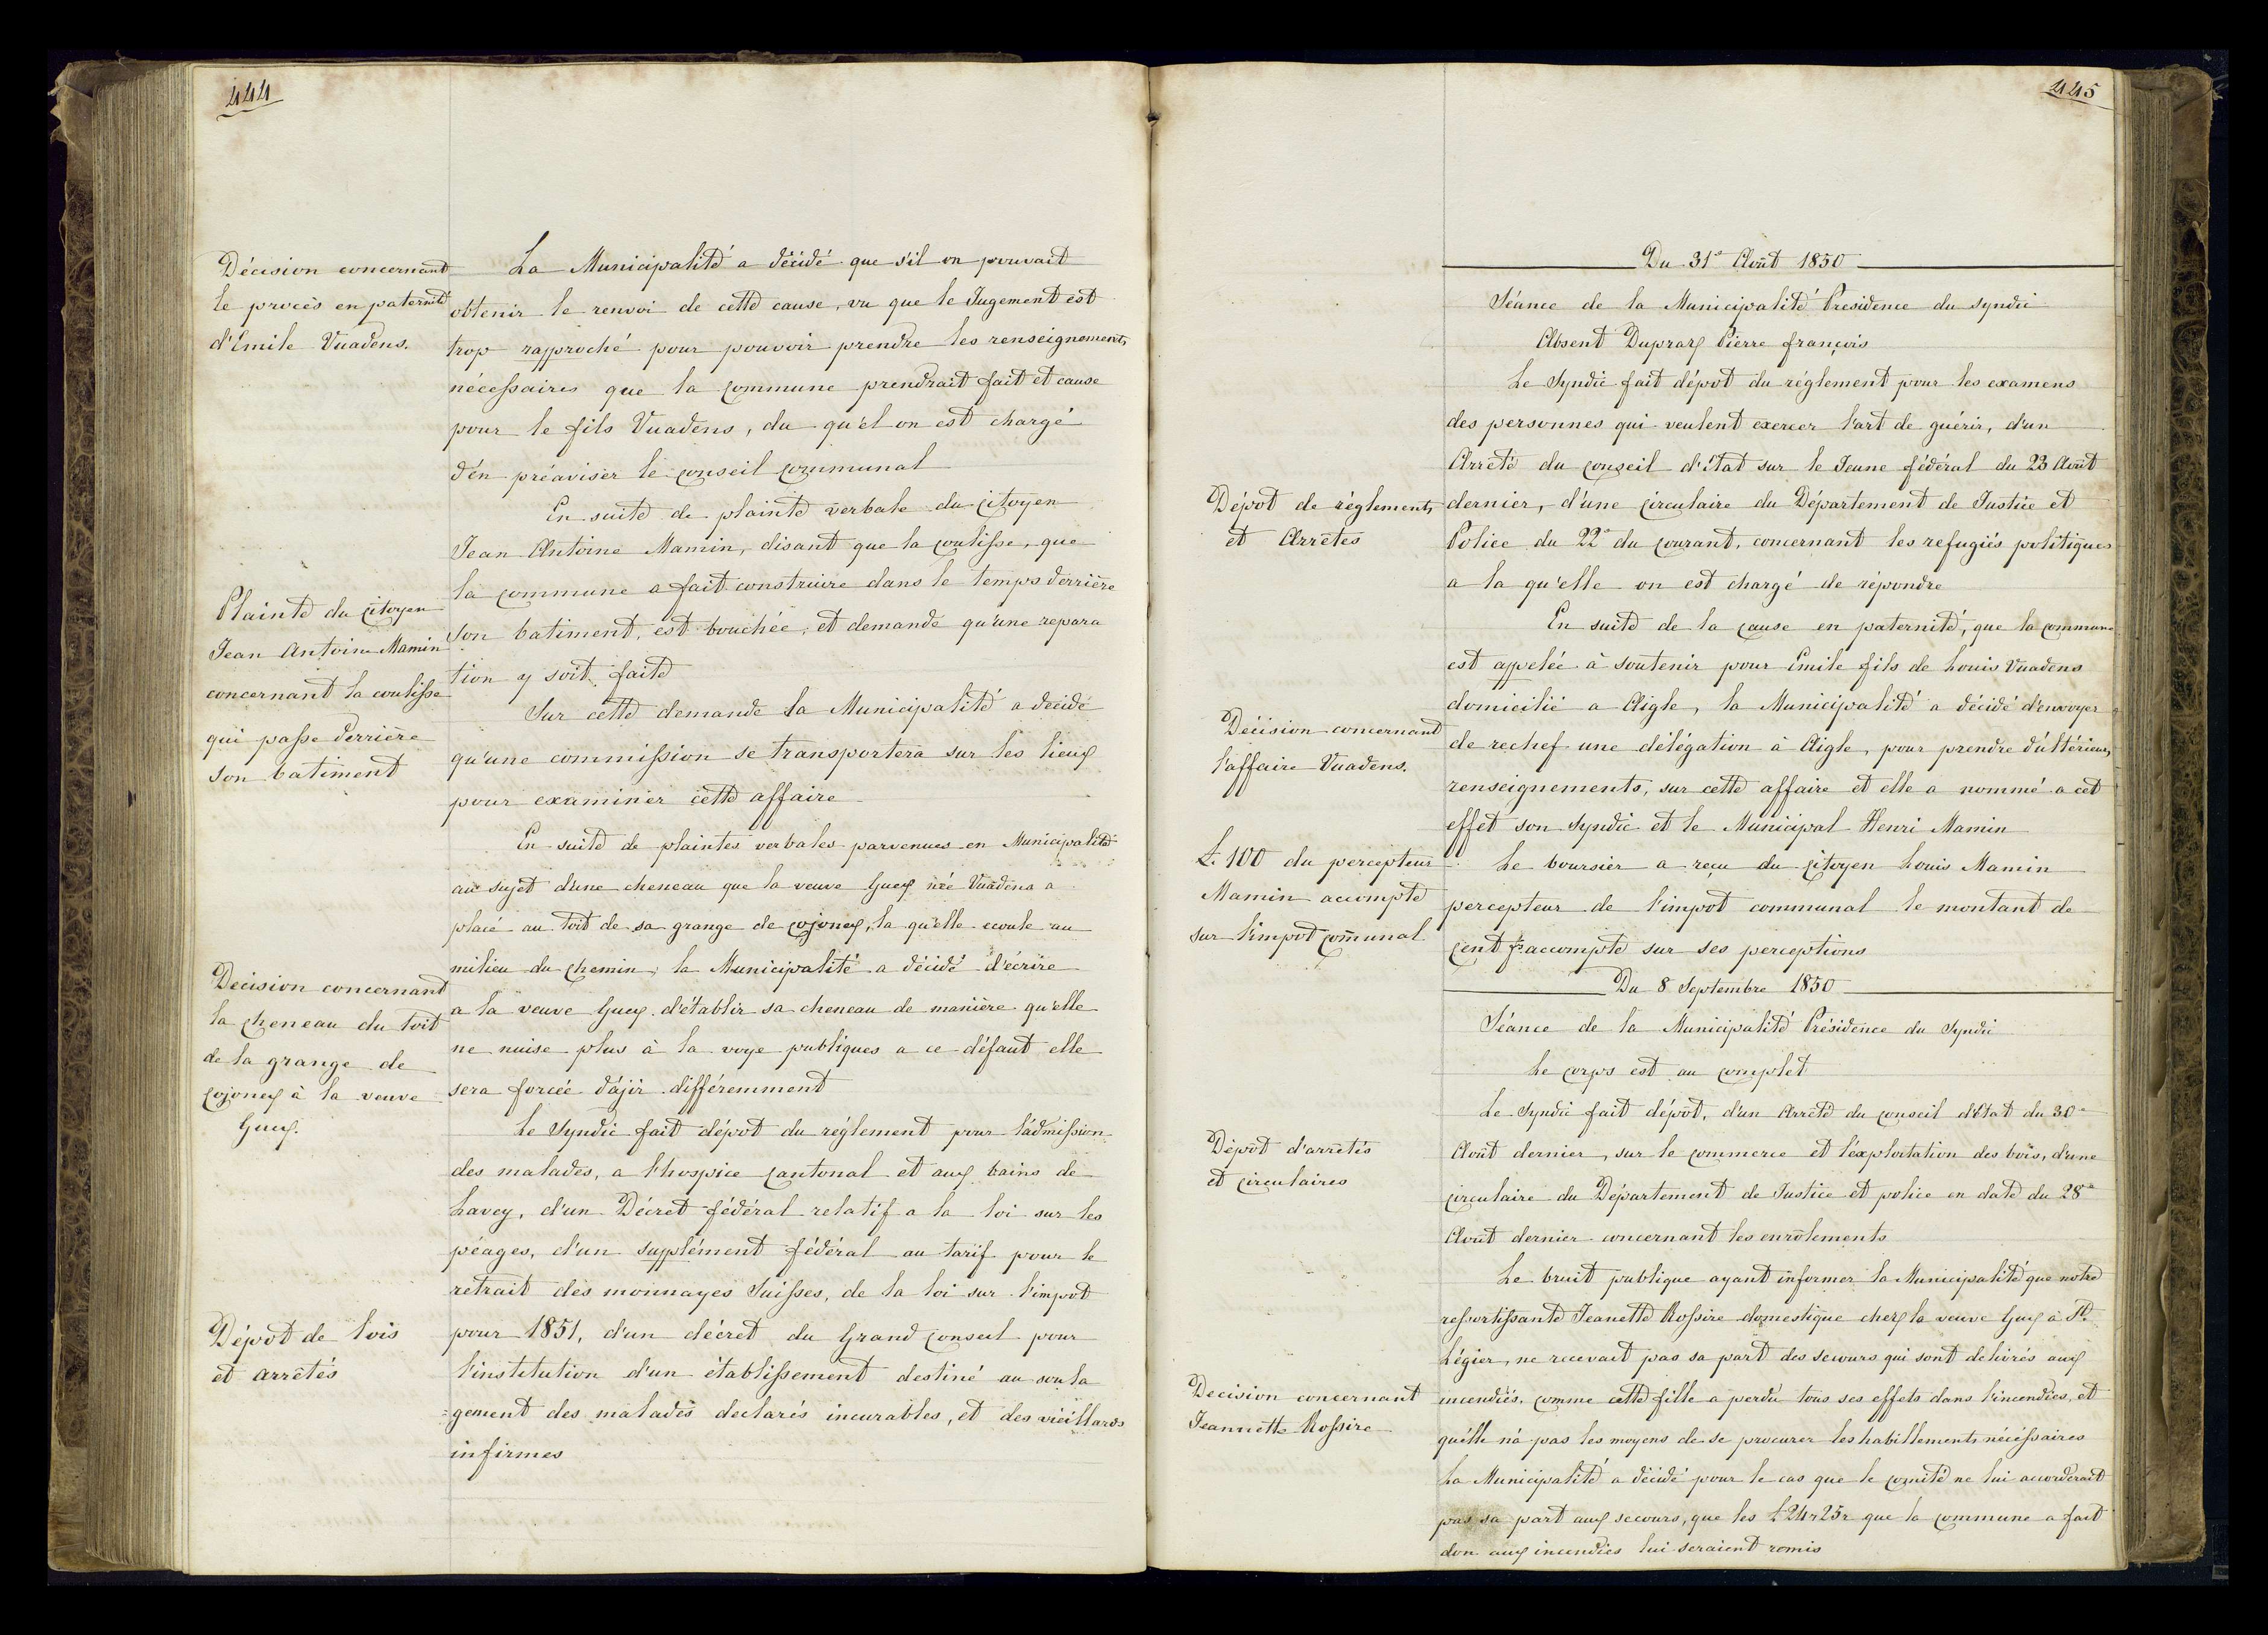 444
Décision concernant
le procès en paternité
d'Emile Vuadens.
La Municipalité a décidé que s'il on pouvait
obtenir le renvoi de cette cause, vu que le Jugement est
trop rapproché pour pouvoir prendre les renseignements
nécessaires que la commune prendrait fait et cause
pour le fils Vuadens, du qu'el on est chargé
d'én préaviser le conseil communal
Plainte du citoyen
Jean Antoine Mamin
concernant la coulisse
qui passe derrière
son batiment
En suite de plainte verbale du citoyen
Jean Antoine Mamin, disant que la coulisse, que
la commune a fait construire dans le temps derrière
son batiment, est bouchée, et demande qu'une repara
tion y soit faite
Sur cette demande la Municipalité a decidé
qu'une commission se transportera sur les lieux
pour examiner cette affaire
Decision concernant
la cheneau du toit
de la grange de
cojonex à la veuve
Guex.
En suite de plaintes verbales parvenues en Municipalité
au sujet d'une cheneau que la veuve Guex née Vuadens a
placé au toit de sa grange de cojonex, la qu'elle ecoule au
milieu du chemin, la Municipalité a décidé d'écrire
a la veuve Guex d'établir sa cheneau de manière qu'elle
ne nuise plus à la voye publiques a ce défaut elle
sera forcée d'ajir différemment
Dépot de lois
et arrêtés
Le Syndic fait dépot du réglement pour l'admission
des malades, a l'hospice cantonal et aux bains de
Lavey, d'un Décret fédéral relatif a la loi sur les
péages, d'un supplément fédéral au tarif pour le
retrait des monnayes Suisses, de la loi sur l'impot
pour 1851, d'un décret du Grand conseil pour
l'institution d'un établissement destiné au soula
=gement des malades declarés incurables, et des vieillards
infirmes
445
Du 31e Août 1850
Séance de la Municipalité Presidence du syndic
Absent Dupraz Pierre françois
Dépot de règlements
et Arrêtés
Le Syndic fait dépot du réglement pour les examens
des personnes qui veulent exercer l'art de guérir, d'un
Arrêté du conseil d'état sur le Jeune fédéral du 23 Août
dernier, d'une circulaire du Département de Justice et
Police du 22e du courant, concernant les refugiés politiques
a la qu'elle on est chargé de répondre
Décision concernant
l'affaire Vuadens.
En suite de la cause en paternité, que la commune
est appelée à soutenir pour Emile fils de Louis Vuadens
domicilié a Aigle, la Municipalité a décidé d'envoyer
de rechef une délégation à Aigle, pour prendre d'ultérieurs
renseignements, sur cette affaire et elle a nommé a cet
effet son syndic et le Municipal Henri Mamin
L. 100 du percepteur
Mamin accompte
sur l'impot com̄unal
Le boursier a reçu du citoyen Louis Mamin
percepteur de l'impot communal le montant de
cent frs accompte sur ses perceptions
Du 8 Septembre 1850
Séance de la Municipalité Présidence du Syndic
Le corps est au complet
Dépôt d'arrêtés
et circulaires
Le Syndic fait dépôt, d'un Arrêté du conseil d'Etat du 30e
Août dernier, sur le commerce et l'exploitation des bois, d'une
circulaire du Département de Justice et police en date du 28e
Août dernier concernant les enrôlements
Decision concernant
Jeannette Rossire
Le bruit publique ayant informer la Municipalité que notre
ressortissante Jeanette Rossire domestique chez la veuve Guex à St.
Légier, ne recevait pas sa part des secours qui sont delivrés aux
incendiés, comme cette fille a perdu tous ses effets dans l'incendies, et
qu'élle n'à pas les moyens de se procurer les habillements nécessaires
La Municipalité a décidé pour le cas que le comité ne lui accorderait
pas sa part aux secours, que les L 24 r 25 r que la commune a fait
don aux incendiés lui seraient remis